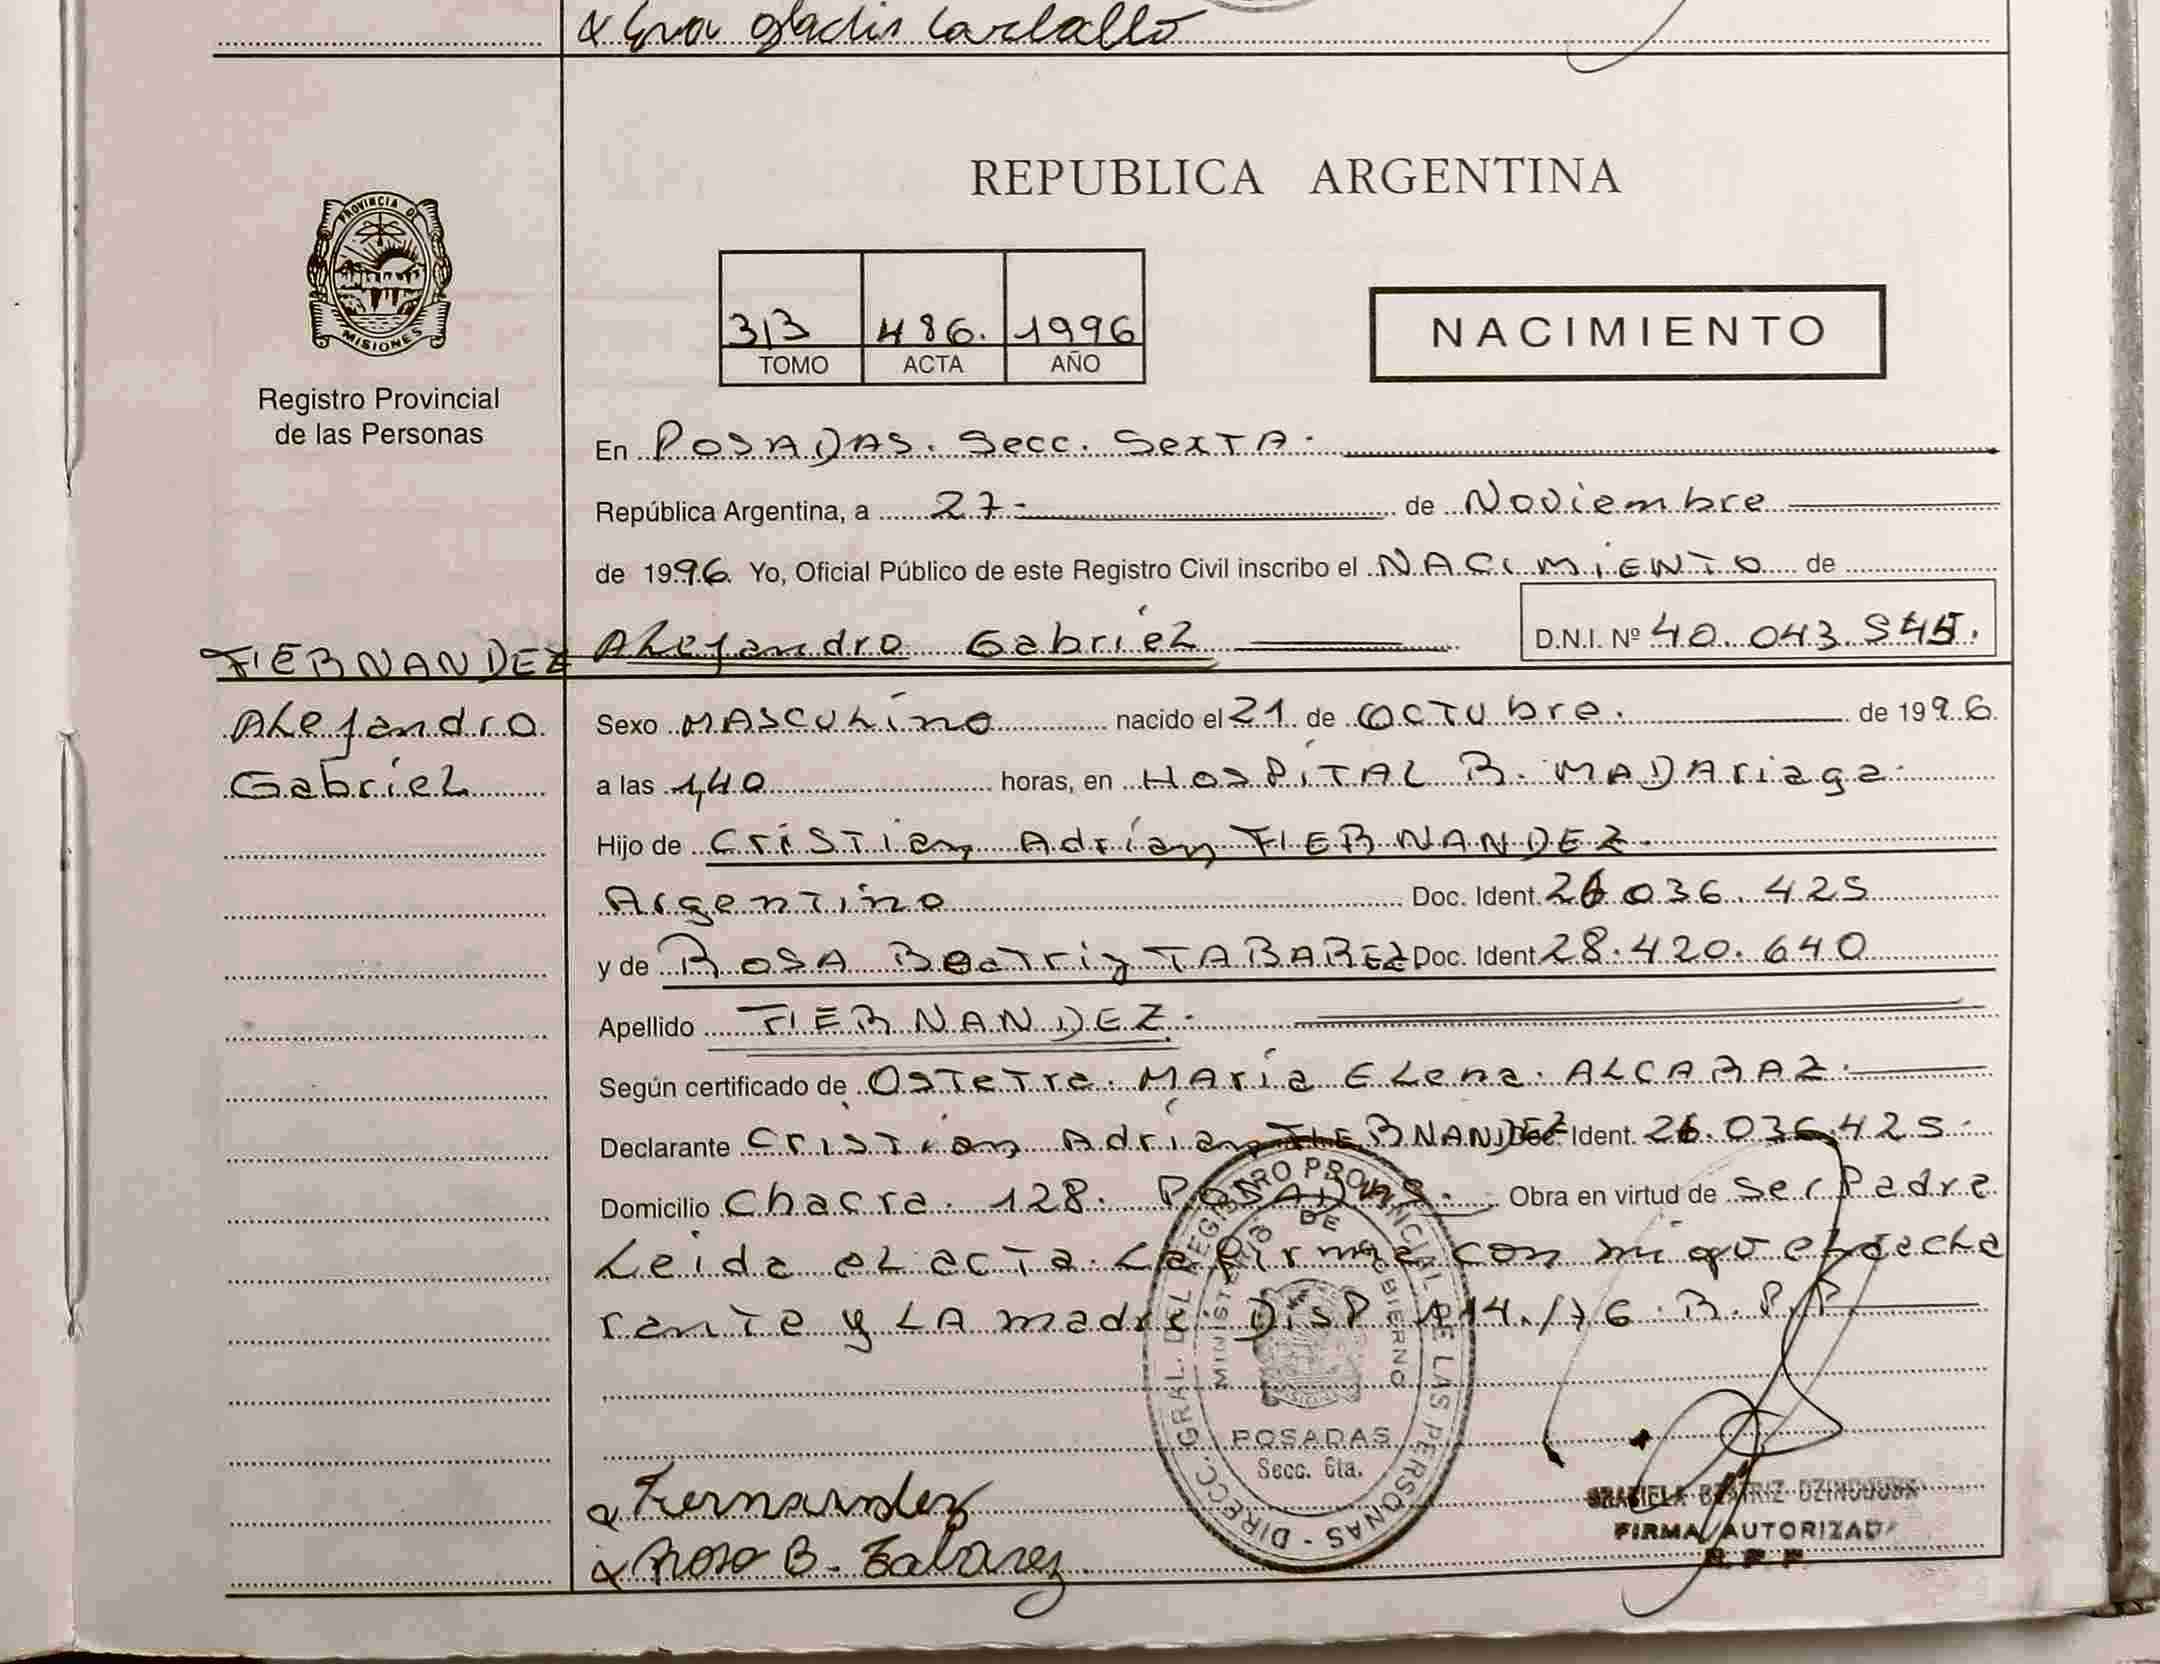 Eva Gladis Carballo
PROVINCIA DE
MISIONES
Registro Provincial
de las Personas
REPUBLICA ARGENTINA
313 486. 1996
TOMO ACTA AÑO
NACIMIENTO
En POSADAS. Secc. SexTA.
República Argentina, a 27- de Noviembre
de 1996 Yo, Oficial Público de este Registro Civil inscribo el NACIMIENTO de
FERNANDEZ Alejandro Gabriel D.N.I. Nº 40.043.545.
Alejandro
Gabriel
Sexo MASCULino nacido el 21 de OCTUbre. de 1996
a las 1,40 horas, en HOSPITAL R. MADAriaga.
Hijo de CrisTian Adrían FERNANDEZ.
ArgenTino Doc. Ident. 26 036.425
y de ROSA BeaTriz TABAREZ Doc. Ident 28.420.640
Apellido FERNANDEZ.
Según certificado de OsTeTra. María ELena. ALCARAZ.
Declarante CrisTian Adrían FERNANDEZ Doc. Ident. 26.036.425.
Domicilio Chacra. 128. POSADAS. Obra en virtud de ser Padre
Leida el acta. La firma con migo el decla
rante y LA madre. DisP. 114./76. R.P.P
DIRECC. GRAL. DEL REGISTRO PROVINCIAL DE LAS PERSONAS
MINISTERIO DE GOBIERNO
POSADAS
Secc. 6ta.
Fernandez
Rosa B. Tabarez
GRACIELA BEATRIZ
FIRMA AUTORIZADA
R.P.P